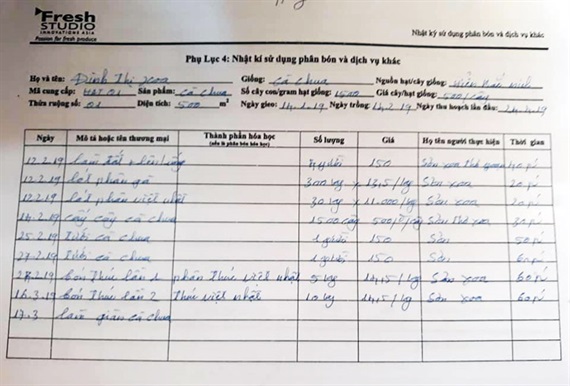 Fresh
STUDIO
INNOVATIONS ASIA
Passion for fresh produce
Nhật ký sử dụng phân bón và dịch vụ khác
Phụ Lục 4: Nhật kí sử dụng phân bón và dịch vụ khác
Họ và tên: Đinh Thị xoa Giống: cà chua Nguồn hạt/cây giống:
Mã cung cấp: HAT 01 Sản phẩm: cà chua Số cây con/gram hạt giống: 1500 Giá cây/hạt giống: 500/cây
Thửa ruộng số: 01 Diện tích: 500 m² Ngày gieo: 14.1.19 Ngày trồng: 14.2.19 Ngày thu hoạch lần đầu: 24.4.19
Ngày Mô tả hoặc tên thương mại Thành phần hóa học Số lượng Giá Họ tên người thực hiện Thời gian
(nếu là phân bón hóa học)
12.2.19 làm đất 150
12.2.19 lót phân gà 300 kg x 13,5/kg Sản xoa
12.2.19 lót phân việt nhật 30 kg x 11.000/kg Sản xoa
14.2.19 cấy cây cà chua 1500 cây 500/cây Sản xoa
25.2.19 tưới cà chua 1 người 150 Sản
27.2.19 tưới cà chua 1 người 150 Sản
28.2.19 bón thúc lần 1 phân thúc việt nhật 5 kg 14,5/kg Sản xoa
16.3.19 bón thúc lần 2 thúc việt nhật 10 kg 14,5/kg Sản xoa
17.3 làm giàn cà chua